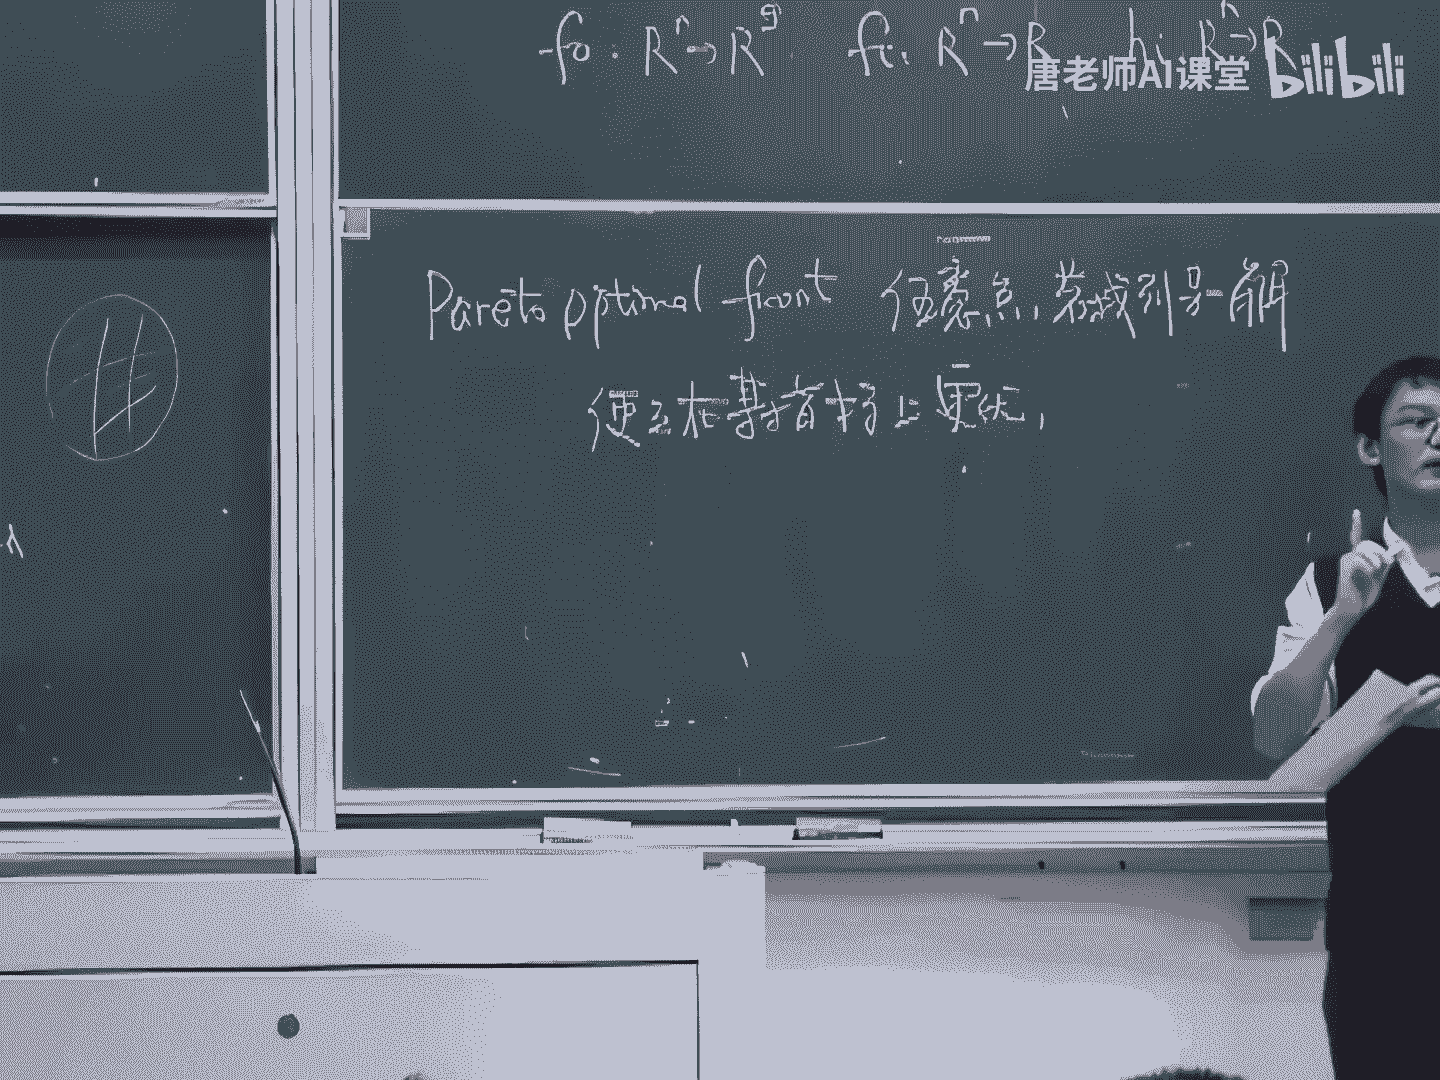 f₀: Rⁿ→R^q fᵢ: Rⁿ→R hᵢ Rⁿ→R
唐老师AI课堂 bilibili
Pareto optimal front 任意点,若找到另一可行解
使之在某指标上更优,
λ